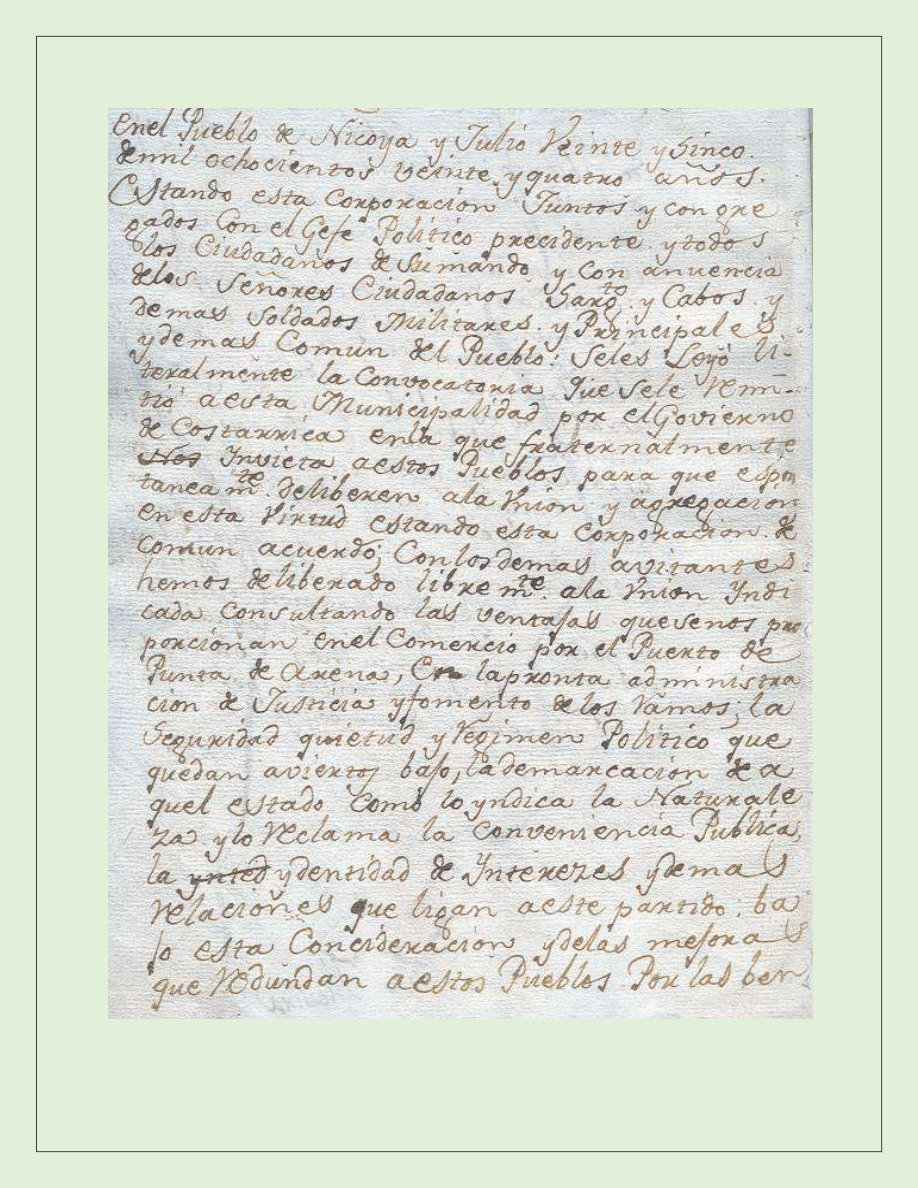 Enel Pueblo de Nicoya y Julio Veinte y Sinco.
demil ochocientos veinte y quatro años.
Estando esta Corporacion Juntos y con gre
gados Con el Gefe Politico precidente y todo s
los Ciudadanos de Sumando y Con anuencia
delos Señores Ciudadanos Sargto y Cabos y
demas Soldados Militares y Principales
y demas Comun del Pueblo: Seles Leyó li-
teralmente la Convocatoria que Sele Remi-
tió a esta Municipalidad por el Govierno
de Costarrica enla que fraternalmente
Nos Invicta aestos Pueblos para que espo
tanea mte. deliberen ala Union y agregacion
en esta Virtud estando esta Corporacion de
comun acuerdo; Con los demas avitantes
hemos deliberado libre mte. ala Union Yndi
cada Consultando las ventajas quesenos pro
porcionan enel Comercio por el Puerto de
Punta de Arena, En lapronta administra
cion de Justicia y fomento de los Ramos; la
Seguridad quietud y Regimen Politico que
quedan aviertos bajo, la demarcacion de a
quel estado Como lo yndica la Naturale
za y lo Reclama la Conveniencia Publica,
la ynted ydentidad de Interezes ydemas
Relacioñes que ligan aeste partido: ba
jo esta Concideracion ydelas mejoras
que Redundan a estos Pueblos Por las ben